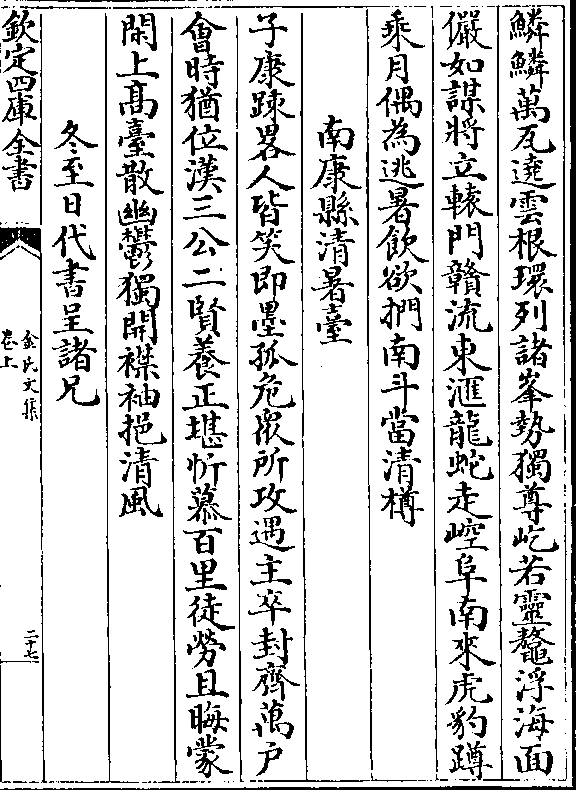 鱗鱗萬瓦遶雲根環列諸峯勢獨尊屹若靈鼇浮海面
儼如謀將立轅門贛流東滙龍蛇走崆阜南來虎豹蹲
乘月偶為逃暑飲欲捫南斗當清樽
南康縣清暑臺
子康踈畧人皆笑即墨孤危衆所攻遇主卒封齊萬户
會時猶位漢三公二賢養正堪忻慕百里徒勞且晦蒙
閑上髙臺散幽鬱獨開襟袖挹清風
冬至日代書呈諸兄
欽定四庫全書
金氏文集
卷上
二十七